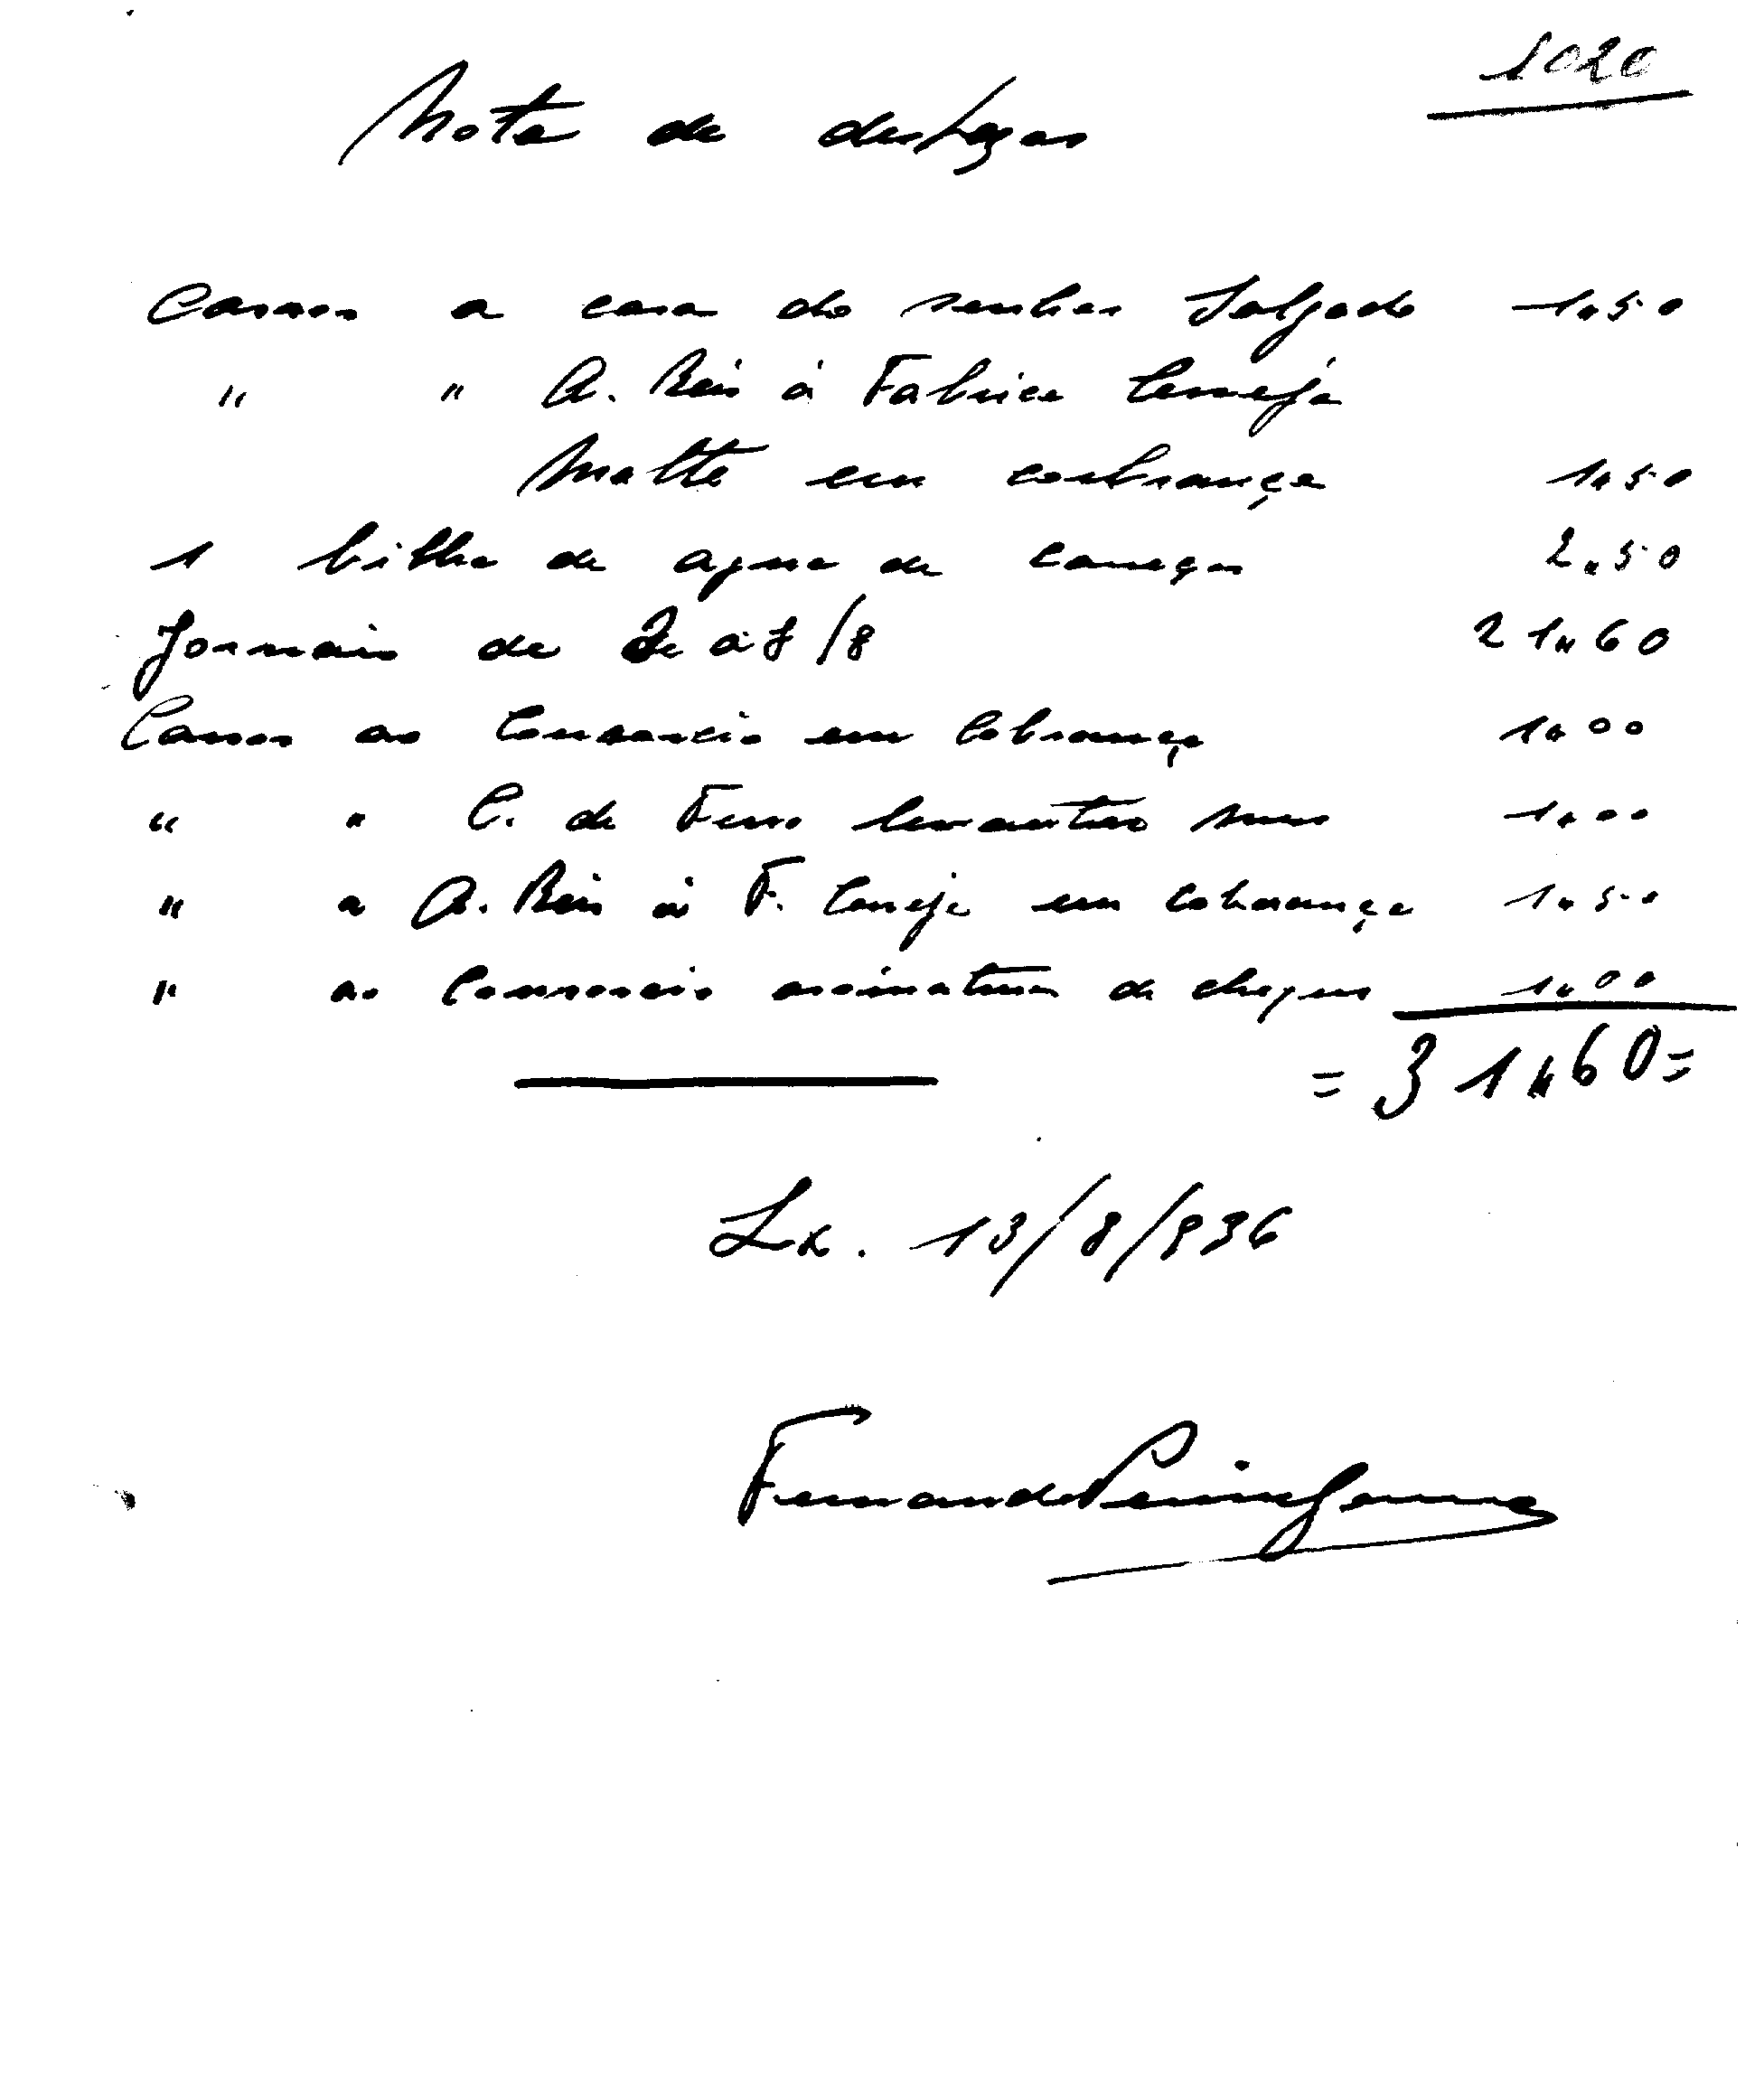 1020
Nota de despezas
Carros a casa do senhor Salgado 1"50
" " A. Reis á Fabrica Cerveja
Malte em cobrança 1"50
1 bilha de agua de Caneças 2"50
Jornais de a 8/8 21"60
Carros ao Consorcio em Cobrança 1"00
" " C. de Ferro levantar 1"00
" a A. Reis á F. Cerveja em Cobrança 1"50
" ao Consorcio assinatura de cheques 1"00
= 31"60=
Lx. 13/8/936
Fernando